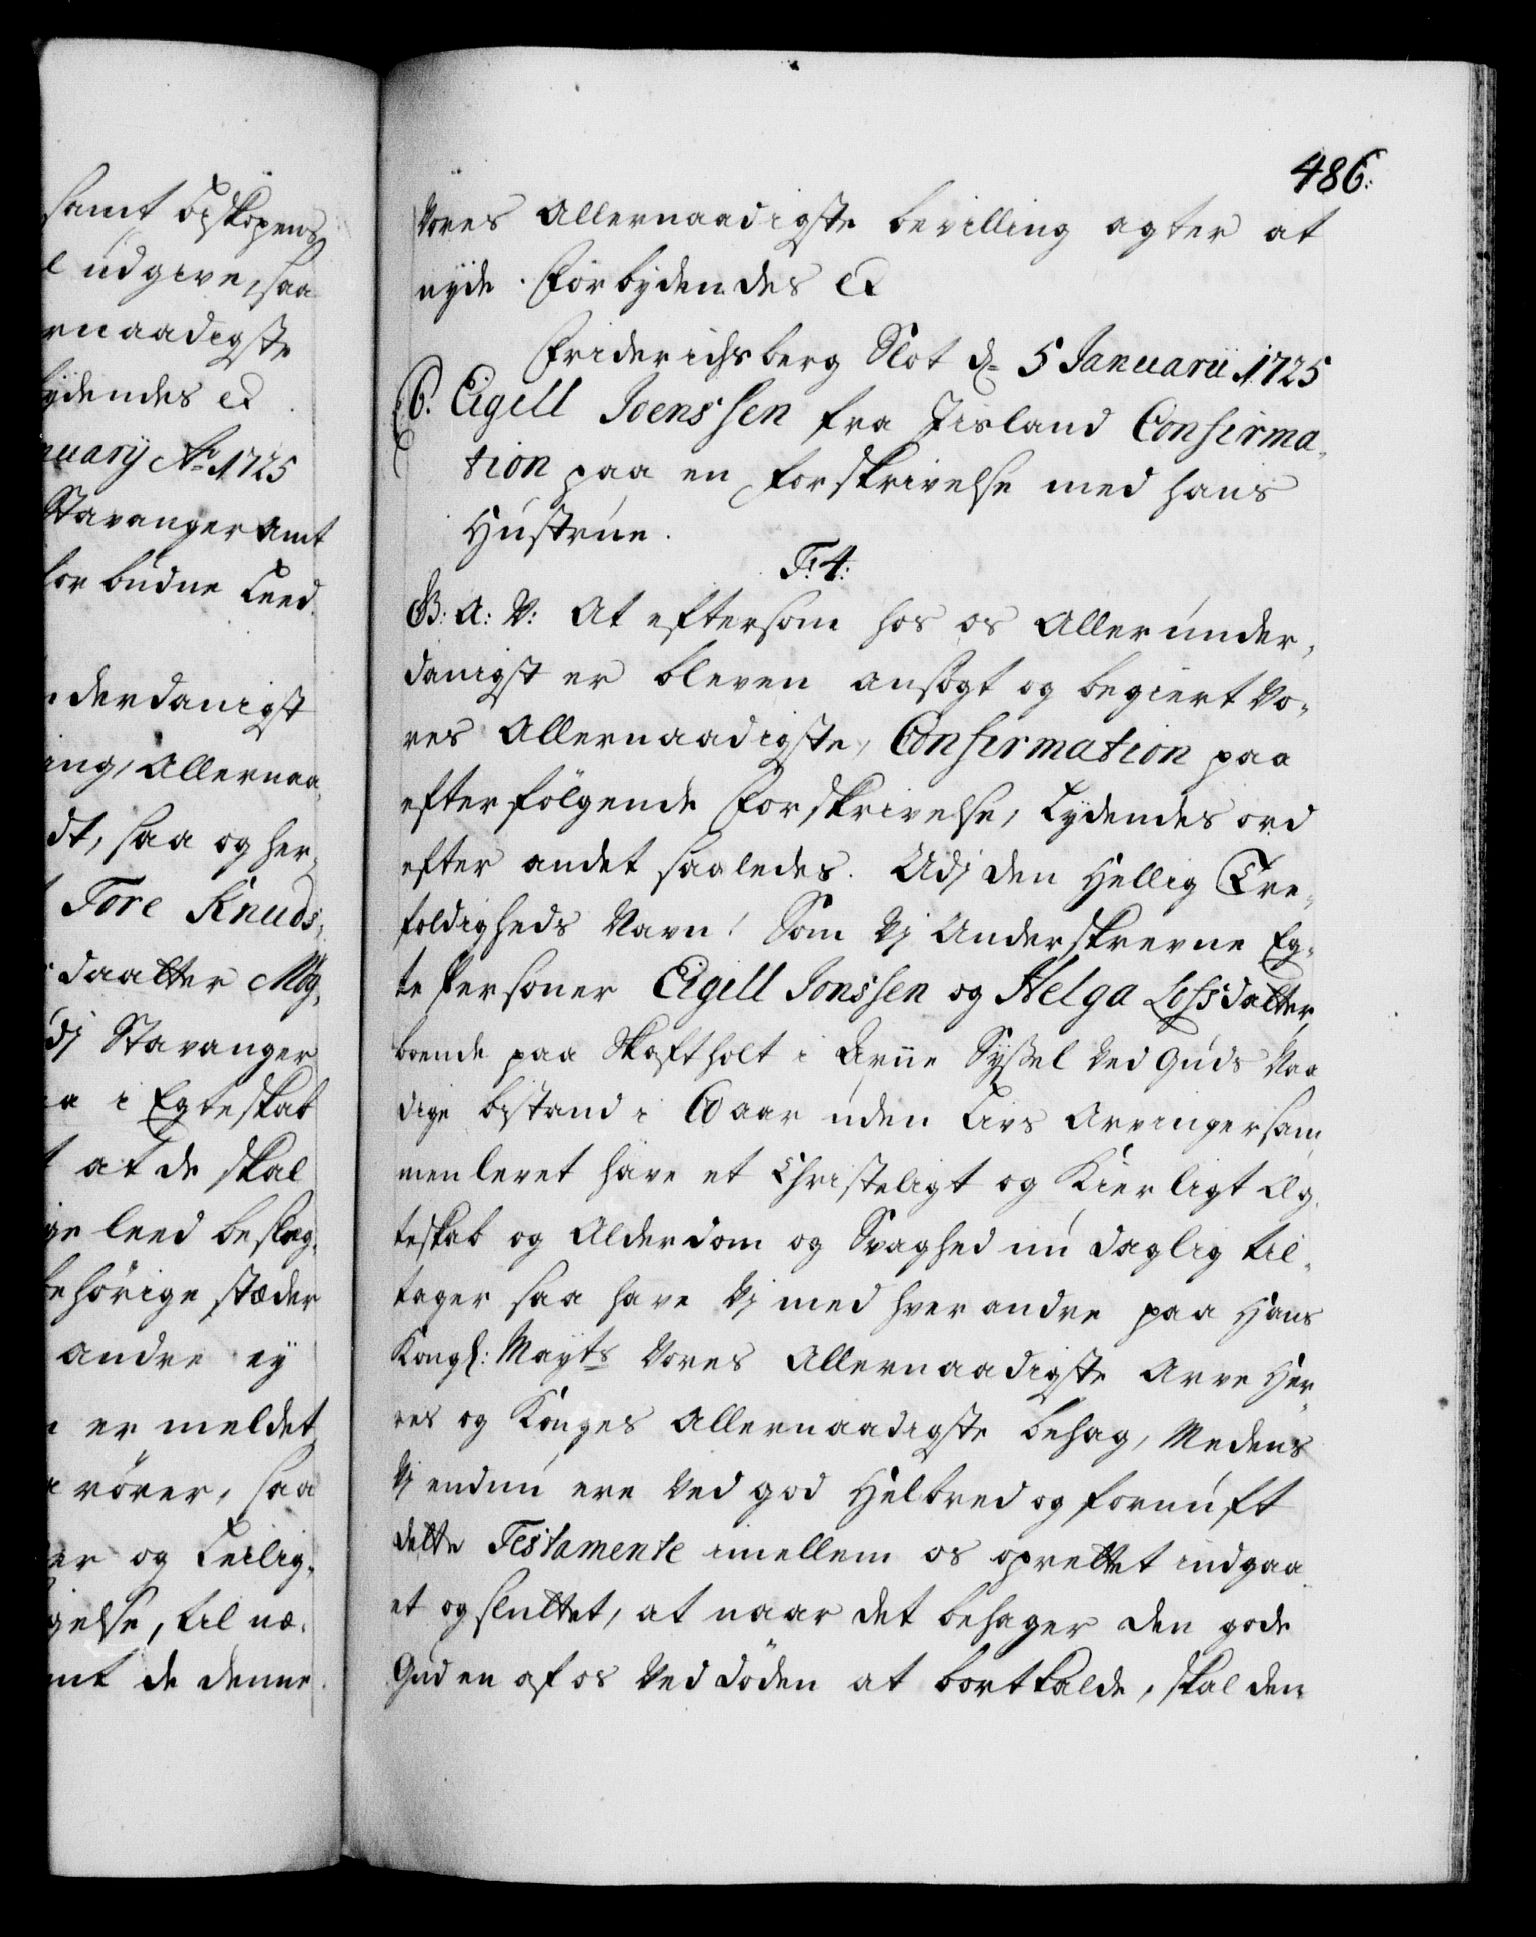 samt biskopens
l udgive, saa
rnaadigste
ydendes etc
nuarij Ao 1725
Stavanger Amt
forbudne Leed.
nderdanigst
ing, Allernaa,
dt, saa og her,
Tore Knuds,
daatter Mog,
dj Stavanger
a i Egteskab
t at de skal
ge leed beslæg,
behörige stæder
andre ey
n er meldet,
rörer, saa
er og Leilig,
gelse, til næ,
mt de denne
486:
Vores Allernaadigste bevilling agter at
nyde. Forbydendes etc
Friderichsberg Slot d= 5 Januarii 1725
6. Eigell Joenssen fra Iisland Confirma,
tion paa en forskrivelse med hans
Hustrue.
F: 4:
G: A: V: At eftersom hos os Allerunder,
danigst er bleven ansögt og begiert Vo,
res Allernaadigste, Confirmation paa
efterfölgende Forskrivelse, Lydendes ord
efter andet saaledes. Udj den Hellig Tre,
foldigheds Navn! Som Vj Underskrevne Eg,
te Personer Eigell Jonssen og Helga Lofsdatter,
boende paa Skaftholt i Arne Syssel Ved Guds Naa
dige bistand i 60 aar uden Livs Arvinger sam,
menlevet have et Christeligt og Kierligt Æg,
teskab og Alderdom og Svaghed nu daglig til,
tager saa have Vj med hverandre paa Hans
Kongl: Mayts Vores Allernaadigste Arve Her,
res og Konges Allernaadigste behag, Medens
Vj endnu ere Ved god Helbred og fornuft
dette Testamente imellem os oprettet indgaa,
et og sluttet, at naar det behager den gode
Gud en af os Ved Döden at bortkalde, skal den